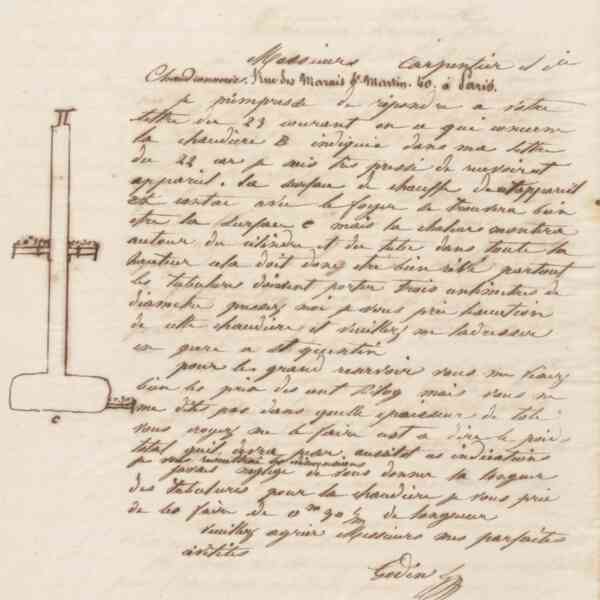 Messieurs Carpentier et Cie
Chaudronniers. Rue des Marais St Martin. 40. à Paris.
je mempresse de répondre a votre
lettre du 23 courant en ce qui concerne
la chaudière B indiquée dans ma lettre
du 22 car je suis très pressé de recevoir cet
appareil. La surface de chauffe de cet appareil
en contac avec le foyer se trouvera bien
etre la surface C mais la chaleur montera
autour du cilindre et du tube dans toute la
hauteur cela doit donc etre bien rivé partout
les tubulures doivent porter trois centimètres de
diamètre pressez moi je vous prie l'execution
de cette chaudière et veuillez me ladresser
en gare a St quentin
pour les grand reservoir vous me fixez
bien le prix des cent kilog mais vous ne
me dites pas dans quelle epaisseur de tole
vous croyez me le faire cest a dire le poids
total quil devra peser aussitot ces indications
je vous remettrai les dimensions
javais négligé de vous donner la longueur
des tubulures pour la chaudière je vous prie
de les faire de 0m 90 c/m de longueur
Veuillez agréer Messieurs mes parfaites
civilités
Godin
C